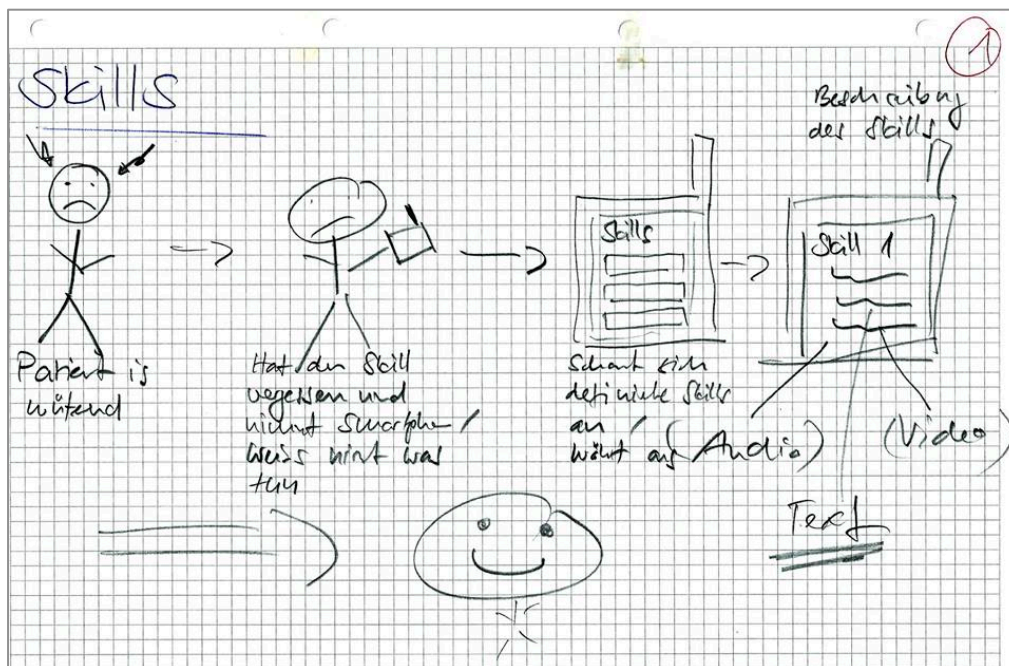 1
Skills
Beschreibung
des Skills
Skills
Skill 1
Patient is
wütend
Hat den Skill
vegessen und
nimmt Smartphon /
weiss nicht was
tun
Schaut sich
definierte Skills
an /
wählt aus
(Audio)
(Video)
Text